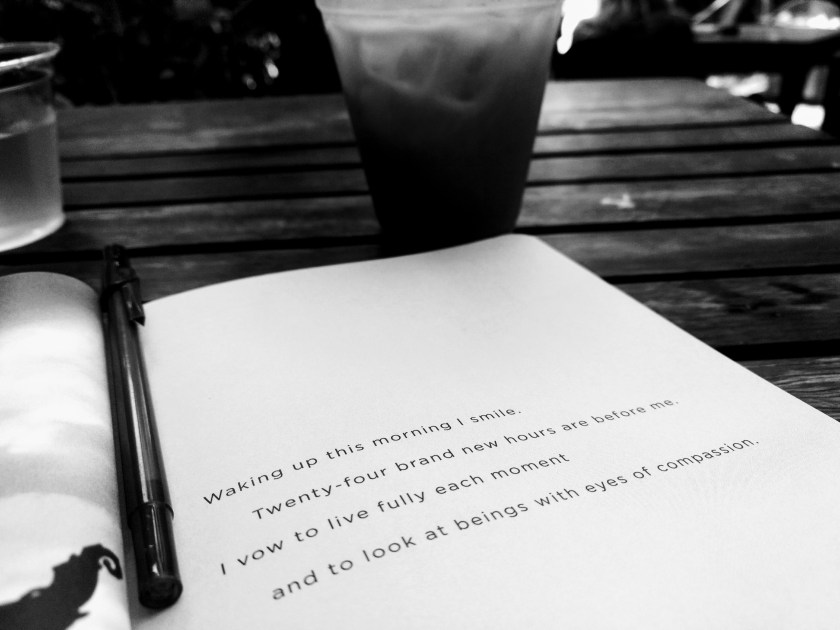 Waking up this morning I smile.
Twenty-four brand new hours are before me.
I vow to live fully each moment
and to look at beings with eyes of compassion.